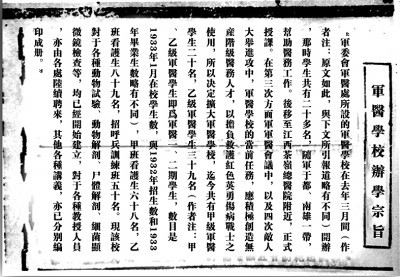 軍醫學校辦學宗旨
“軍委會軍醫處所設的軍醫學校在去年三月間（作
者注：原文如此，與下文所引報道略有不同）開辦
，那時學生共有二十多名，隨軍于都、南雄一帶，
幫助醫務工作。後移至江西茶嶺總醫院附近，正式
授課。在第三次方面軍軍醫會議中，以及四次敵人
大舉進攻中，軍醫學校的當前任務，應積極創造無
産階級醫務人才，以擔負救護紅色英勇傷病戰士之
使用，所以決定擴大軍醫學校，迄今共有甲級軍醫
學生二十名，乙級軍醫學生三十九名（作者注：甲
、乙級軍醫學生即爲軍醫一、二期學生，數目是
1933年1月在校學生數，與1932年招生數和1933
年畢業生數略有不同）甲班看護生六十八名，乙
班看護生八十九名，招呼兵訓練班五十名。現該校
對于各種動物試驗、動物解剖、尸體解剖、細菌顯
微鏡檢查等，均已經開始建立，對于各種教授人員
，亦由各處陸續聘來，其他各種講義，亦已分別編
印成册。”